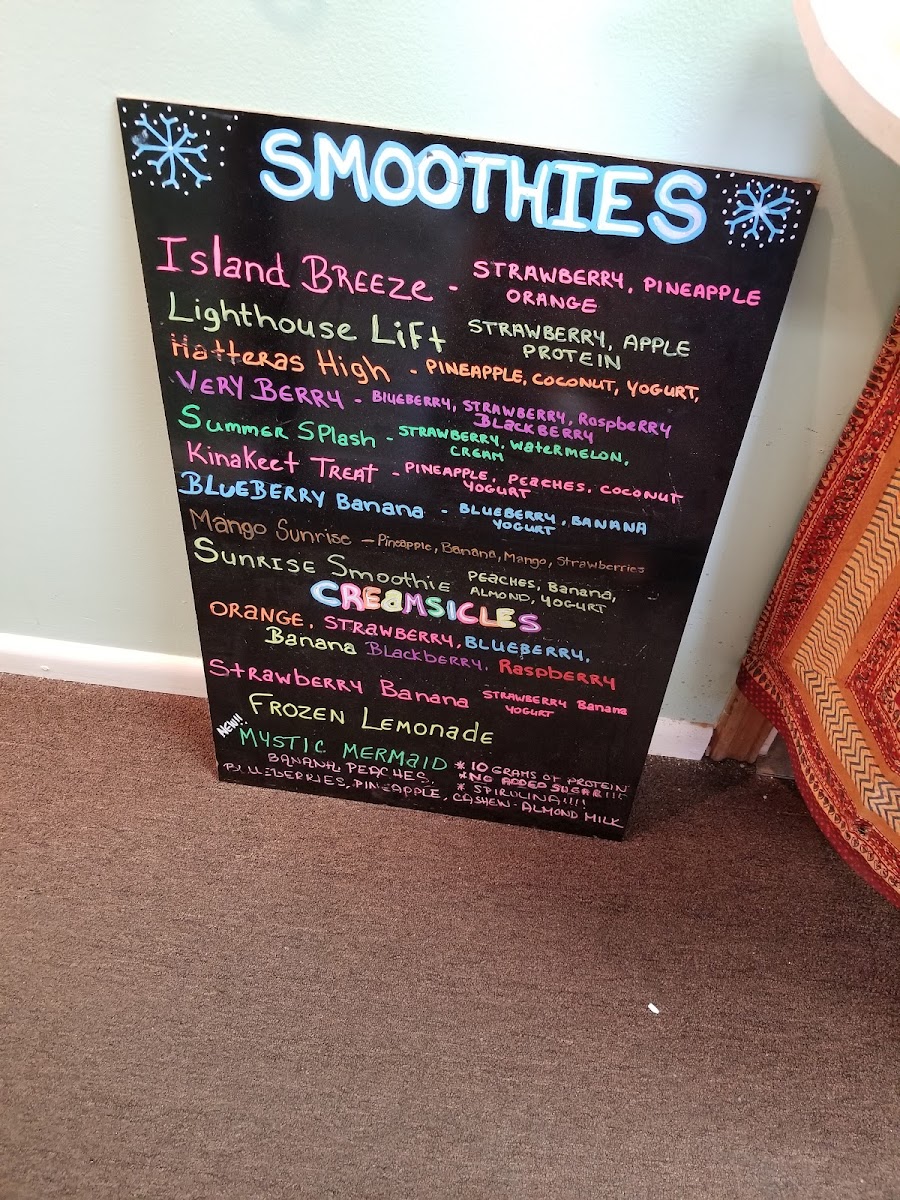 SMOOTHIES
Island BREEZE - STRAWBERRY, PINEAPPLE
ORANGE
Lighthouse LiFt STRAWBERRY, APPLE
PROTEIN
Hatteras High - PINEAPPLE, COCONUT, YOGURT,
VERY BERRY - BlUEBERRY, STRAWBERRY, Raspberry
BLACKBERRY
SUMMER SPlash - STRAWBERRY, WateRMELON,
CREAM
Kinakeet TREAT - PINEAPPLE, PEaCHES, COCONUT
YOGURT
BLUEBERRY Banana - BLUEBERRY, BANANA
YOGURT
Mango Sunrise - Pineapple, Banana, Mango, Strawberries
SUNRISE Smoothie PEACHES, Banana,
ALMOND, YOGURT
CREaMSICLES
ORANGE, STRaWBERRY, BLUEBERRY,
Banana Blackberry, Raspberry
StrawbeRRY Banana STRAWBERRY Banana
YOGURT
FROZEN LEMONADE
NEW!!
MYSTIC MERMaID * 10 GRAMS OF PROTEIN
BANANA, PEACHES, * NO ADDED SUGAR!!!
* SPIRULINA!!!!
BLUEBERRIES, PINEAPPLE, CASHEW-ALMOND MILK